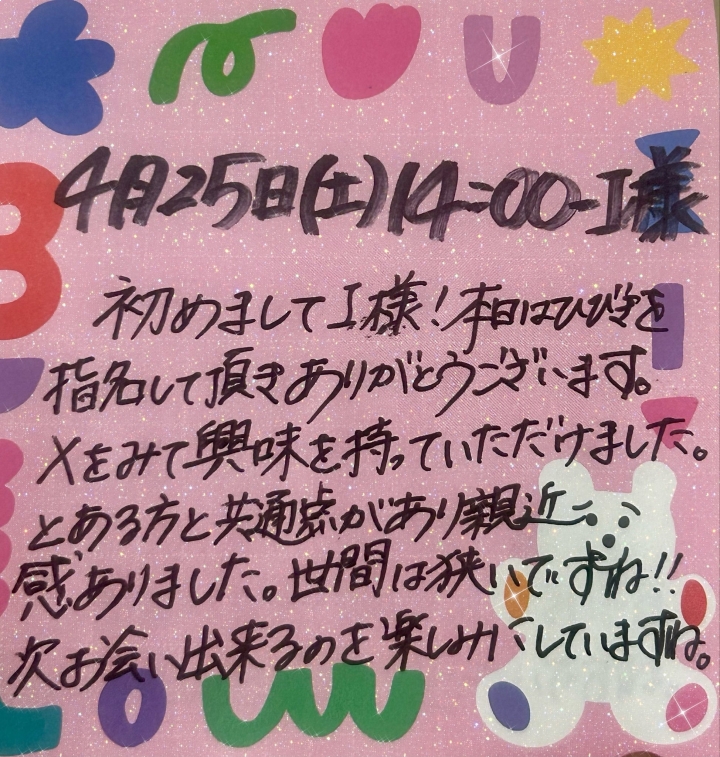 4月25日(土)14:00-I様
初めまして I様！本日はひびきを
指名して頂きありがとうございます。
Xをみて興味を持っていただけました。
とある方と共通点があり親近
感ありました。世間は狭いですね!!
次お会い出来るのを楽しみにしていますね。